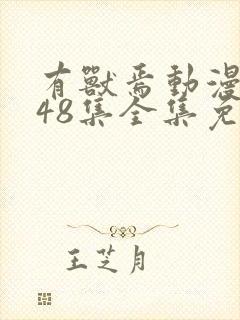 有獸焉動漫
48集全集免
王芝月